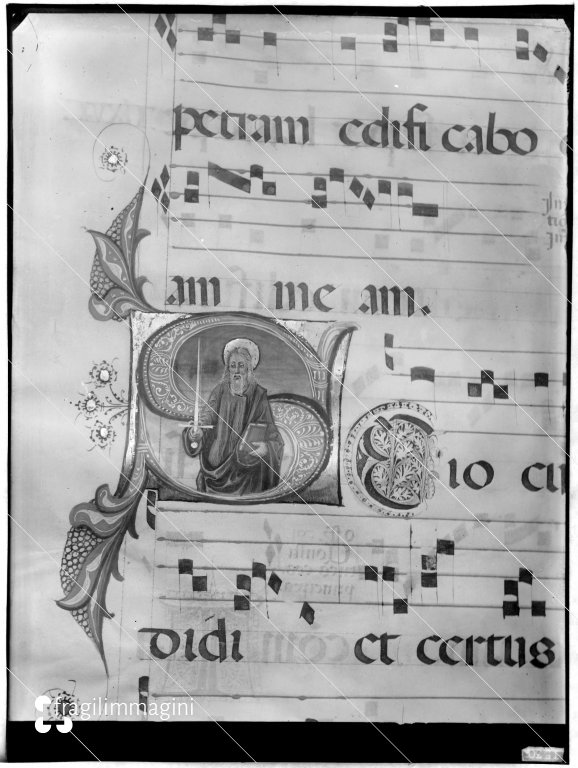 petram edifi cabo
am me am.
S cio cu
didi et certus
fragilimmagini